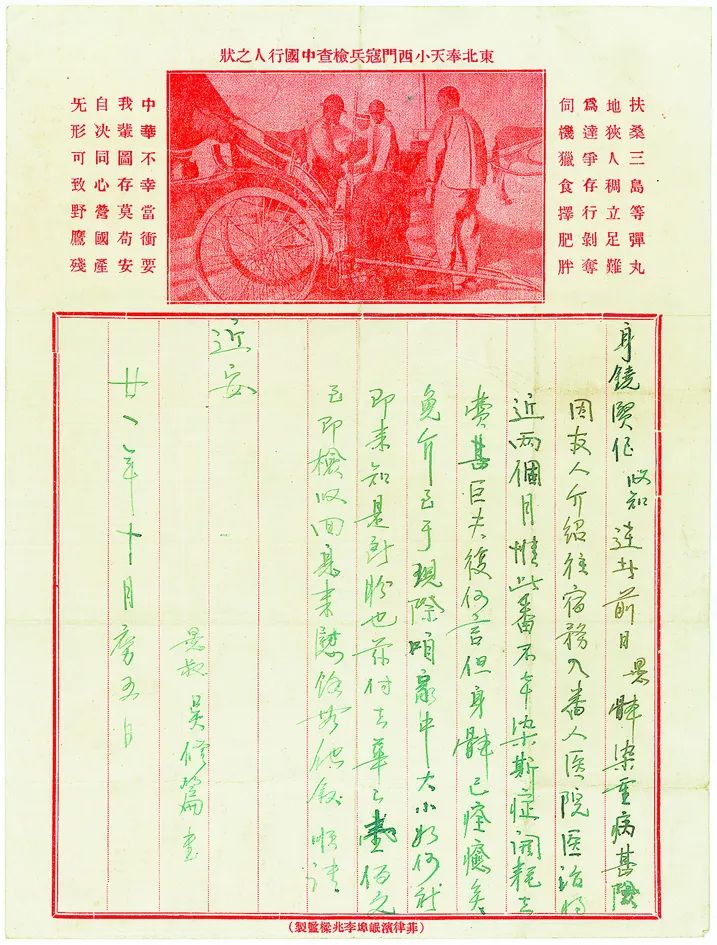 東北奉天小西門寇兵檢查中國行人之狀
扶桑三島等彈丸
地狹人稠立足難
爲達爭存行剝奪
伺機獵食擇肥胖
中華不幸當衝要
我輩圖存莫苟安
自决同心營國產
旡形可致野鷹殘
身鏡賢侄收知逕者前日愚體染重病甚險
因友人介紹往宿務入番人医院医治將
近兩個月惟此番不幸染斯症開耗之
費甚巨夫復何言但身體已痊癒矣
免介至于現際咱家中大小如何祈
即來知是所盼也茲付去華 壹佰元
至即檢收回息來慰餘容後敘順請
近安
愚叔吳修篇書
廿一年十月初五日
(菲律濱岷埠李兆樑監製)